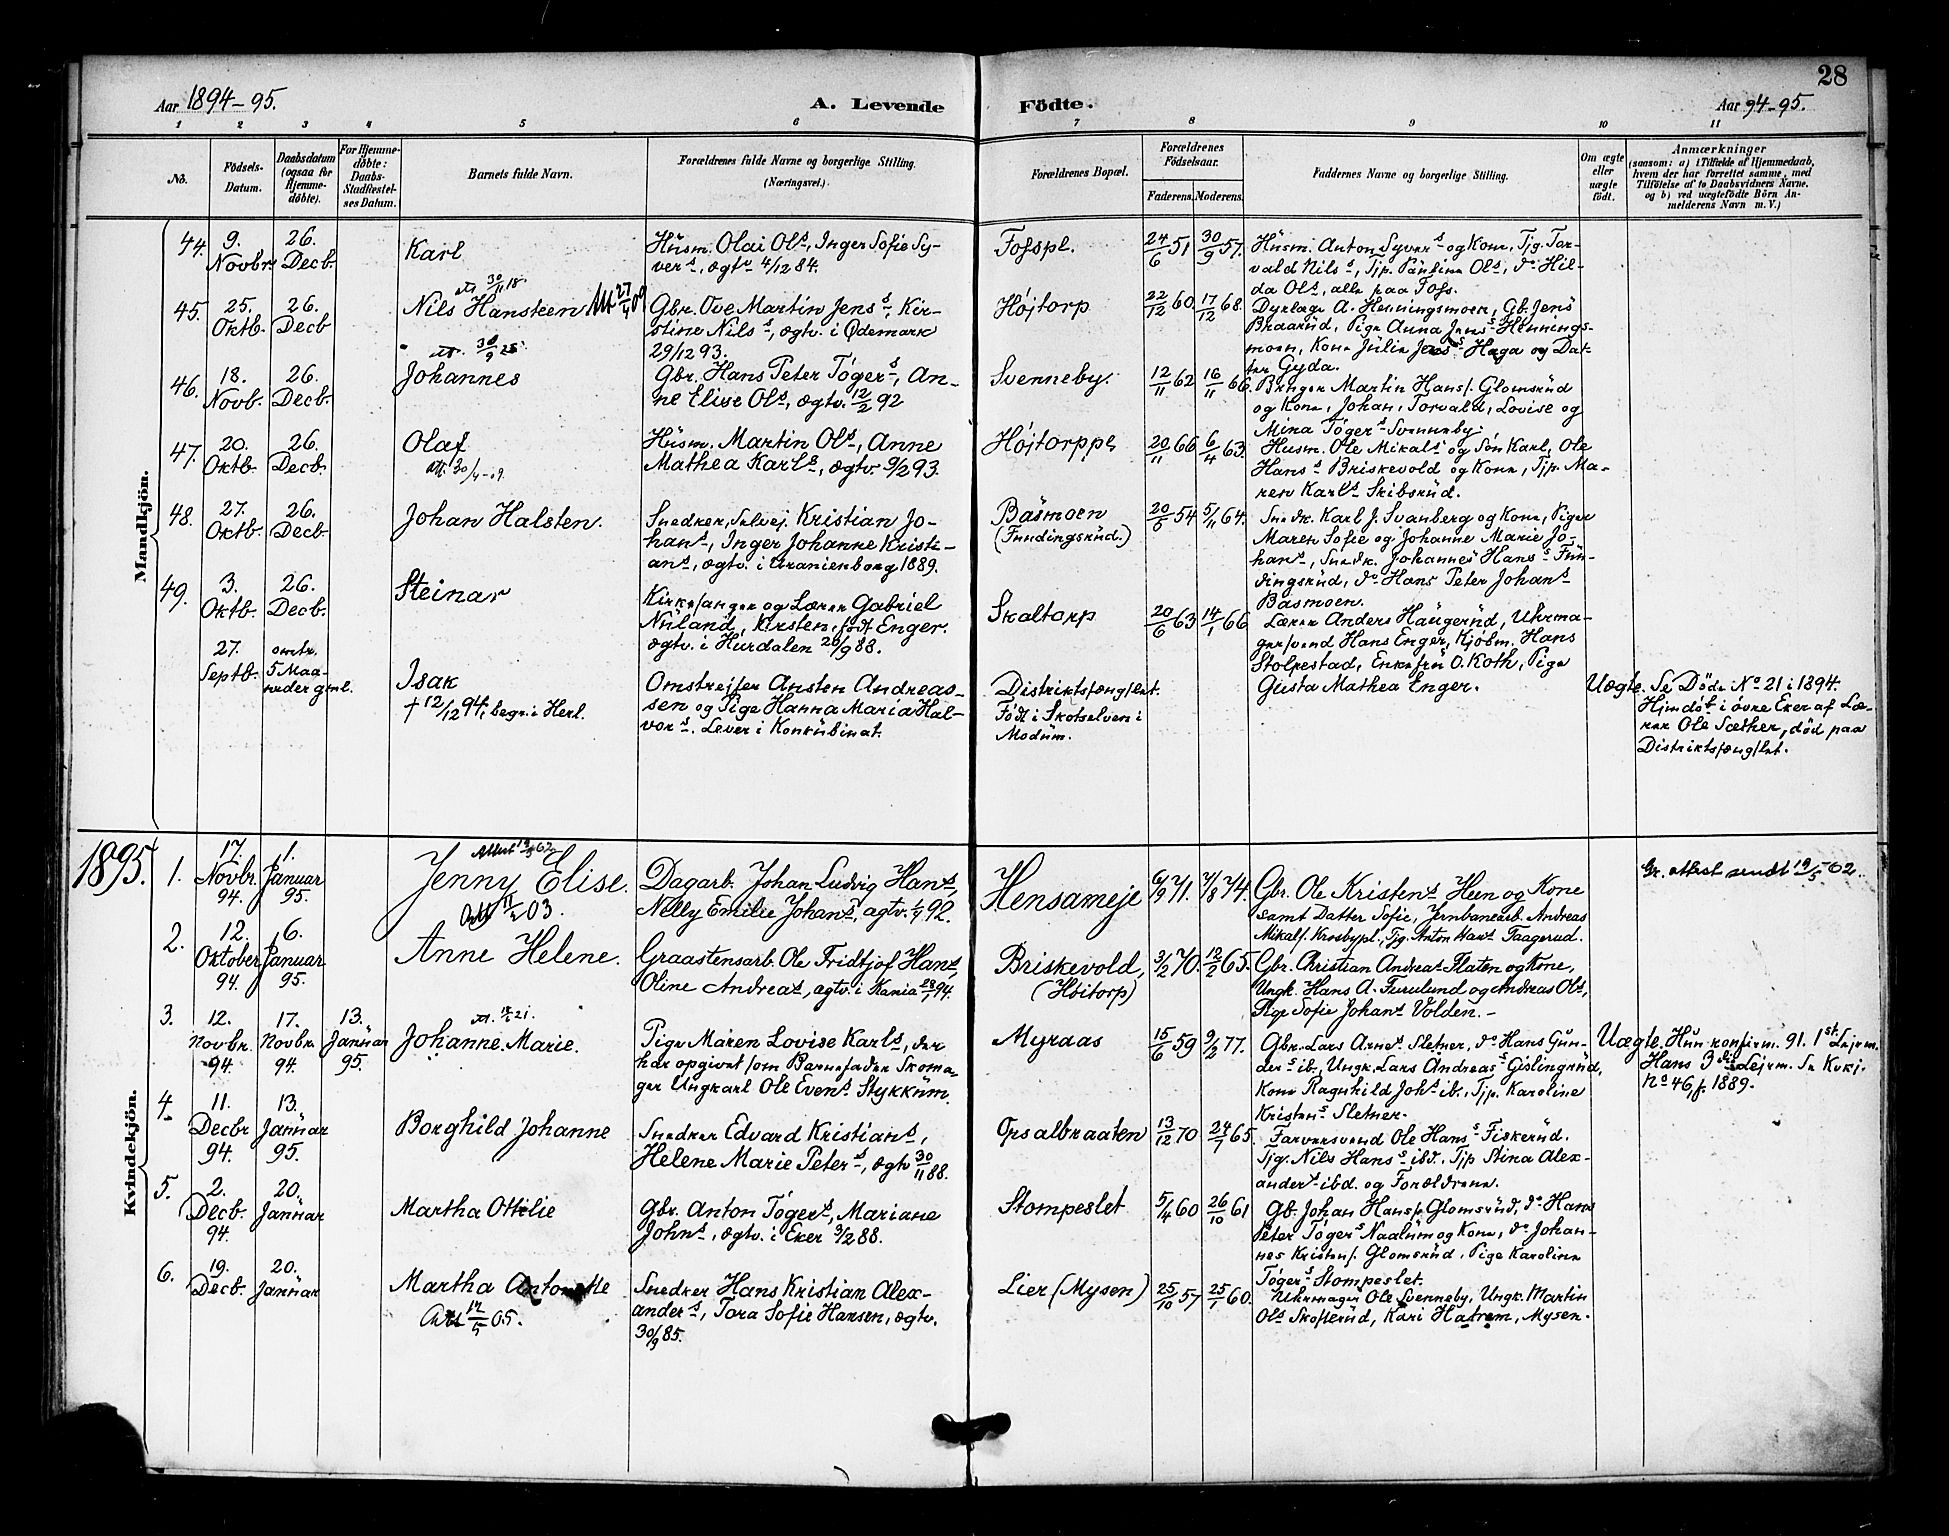 28
Aar 1894-95. A. Levende Födte. Aar 94-95.
1 2 3 4 5 6 7 8 9 10 11
No. Födsels-Datum. Daabsdatum (ogsaa for Hjemme-döbte). For Hjemme-döbte: Daabs-Stadfæstel-ses Datum. Barnets fulde Navn. Forældrenes fulde Navne og borgerlige Stilling. (Næringsvei.) Forældrenes Bopæl. Forældrenes Födselsaar. Faderens. Moderens. Faddernes Navne og borgerlige Stilling. Om ægte eller uægte født. Anmærkninger
(saasom: a) i Tilfælde af Hjemmedaab,
hvem der har forrettet samme, med
Tilføielse af to Daabsvidners Navne.
og b) ved uægtefödte Börn An-
melderens Navn m. V.)
Mandkjön.
44. 9. Novbr. 26. Decb.
Karl
Husm. Olai Ols, Inger Sofie Sy-
vers, ægtv 4/12 84.
Fosspl.
24/6 51 30/9 57.
Husm. Anton Syvers og Kone, Tjg. Tor-
vald Nilss, Tjp. Paulina Ols, do Hil-
da Ols, alle paa Foss.
45. 25. Oktb. 26. Decb
30/11 18.
Nils Hansteen Att 27/4 09
Gbr. Ove Martin Jenss, Kir-
stine Nilss, ægtv. i Ødemark
29/12 93.
Højtorp
22/12 60 17/12 68.
Dyrlæge A. Henningsmoen, Gb. Jens
Braarud, Pige Anna Jenss Hennings-
moen, Kone Julie Jenss Haga og Dat-
ter Gyda.
46. 18. Novb. 26. Decb.
att. 30/9 25
Johannes
Gbr. Hans Peter Tøgers, An-
ne Elise Ols, ægtv. 12/2 92
Svenneby.
12/11 62 16/11 66.
Bruger Martin Hanss. Glomsrud
og Kone, Johan, Torvald, Lovise og
Mina Tøgers Svenneby.
47. 20. Oktb. 26. Decb.
Olaf
Att. 30/4-09.
Husm. Martin Ols, Anne
Mathea Karls, ægtv. 9/2 93.
Højtorppl
20/11 66 6/4 63.
Husm. Ole Mikals og Søn Karl, Ole
Hanss Briskevold og Kone, Tjp. Ma-
ren Karls Skibsrud.
48. 27. Oktb. 26. Decb.
Johan Halsten.
Snedker, Selvej. Kristian Jo-
hans, Inger Johanne Kristi-
ans, ægtv. i Uranienborg 1889.
Båsmoen
(Fundingsrud.)
20/6 54 5/11 64.
Snedk. Karl J. Svanberg og Kone, Piger
Maren Sofie og Johanne Marie Jo-
hans, Snedk. Johannes Hanss Fun-
dingsrud, do Hans Peter Johans
Båsmoen.
49. 3. Oktb. 26. Decb.
Steinar
Kirkesanger og Lærer Gabriel
Nuland, Kirsten, født Enger.
ægtv. i Hurdalen 20/9 88.
Skaltorp
20/6 63 14/1 66
Lærer Anders Haugerud, Uhrma-
gersvend Hans Enger, Kjøbm. Hans
Stolpestad, Enkefru O. Koth, Pige
Gusta Mathea Enger.
27. Septb. omtr. 5 Maa-neder gml.
Isak
† 12/12 94, begr. i Herl.
Omstreifer Ansten Andreas-
sen og Pige Hanna Maria Hal-
vors. Lever i Konkubinat.
Distriktsfængslet.
Født i Skotselven i
Modum.
Uægte. Se Døde No 21 i 1894.
Hjmdøt i øvre Eker af Læ-
rer Ole Sæther, død paa
Distriktsfængslet.
1895.
Kvindekjön.
1. 17. Novbr. 94. 1. Januar 95.
Attest 19/5 62
Jenny Elise.
Att 11/2 03.
Dagarb. Johan Ludvig Hans,
Nelly Emilie Johans, ægtv. 1/7 92.
Hensameje
6/9 71. 7/8 74.
Gbr. Ole Kristens Heen og Kone
samt Datter Sofie, Jernbanearb. Andreas
Mikals. Krosbypl., Tjg. Anton Hans Taagerud.
Gr. attest sendt 19/5 62.
2. 12. Oktober 94. 6. Januar 95.
Anne Helene.
Graastensarb. Ole Fridtjof Hans,
Oline Andreas, ægtv. i Kania 28/1 94.
Briskevold,
(Høitorp)
3/2 70. 12/2 65.
Gbr. Christian Andreas Flaten og Kone,
Ungk. Hans A. Furulund og Andreas Ols,
Pige Sofie Johans Volden. -
3. 12. Novbr. 94. 17. Novbr. 94. 13. Januar 95.
Johanne Marie.
Pige Maren Lovise Karls, der
har opgivet som Barnefader Skoma-
ger Ungkarl Ole Evens. Stykkum.
Myraas
15/6 59 9/2 77.
Gbr. Lars Arnes. Sletner, do Hans Gun-
ders ib., Ungk. Lars Andreass Gislingrud,
Kone Ragnhild Johs ib., Tjp. Karoline
Kristens Sletner.
Uægte. Hun konfirm. 91. 1st Lejrm.
Hans 3die Lejerm. Se Kvkj.
No 46, f. 1889.
4. 11. Decbr 94. 13. Januar 95.
Borghild Johanne
Snedker Edvard Kristians,
Helene Marie Peters, ægtv 30/11 88.
Opsalbraaten
13/12 70 24/7 65.
Farversvend Ole Hanss Fiskerud.
Tjg. Nils Hanss ibd., Tjp Stina Alex-
anders ibd. og Forældrene.
5. 2. Decb. 94. 20. Januar
Martha Ottilie
Gbr. Anton Tøgers, Mariane
Johns, ægtv. i Eker 9/2 88.
Stompeslet
5/4 60 26/10 61
Gb. Johan Hanss. Glomsrud, do Hans
Peter Tøgers Naalum og Kone, do Johan-
nes Kristens. Glomsrud, Pige Karoline
Tøgers Stompeslet.
6. 19. Decb. 20. Januar
Martha Antonette
Att 17/5 05.
Snedker Hans Kristian Alex-
anders, Tora Sofie Hansen, ægtv.
30/9 85.
Lier (Mysen)
25/10 57 25/1 60.
Uhrmager Ole Svenneby, Ungk. Martin
Ols Skofterud, Kari Hatrem, Mysen.